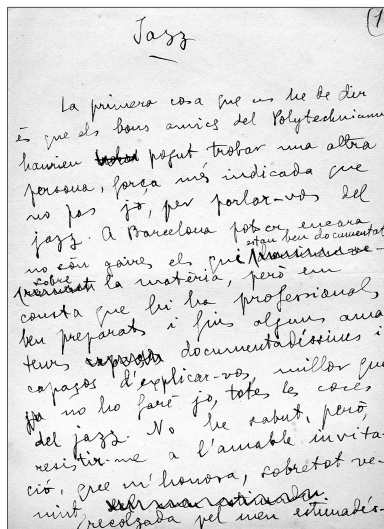 (1
Jazz
La primera cosa que us he de dir
és que els bons amics del Polytechnicum
haurien pogut trobar una altra
persona, força més indicada que
no pas jo, per parlar-vos del
jazz. A Barcelona potser encara
estan ben documentats
no són gaires els que
sobre la matèria, però em
consta que hi ha professionals
ben preparats i fins alguns ama
teurs documentadíssims i
capaços d'explicar-vos millor que
no ho faré jo, totes les coses
del jazz. No he sabut, però,
resistir-me a l'amable invita-
ció, que m'honora, sobretot ve-
nint
recolzada pel meu estimadís-